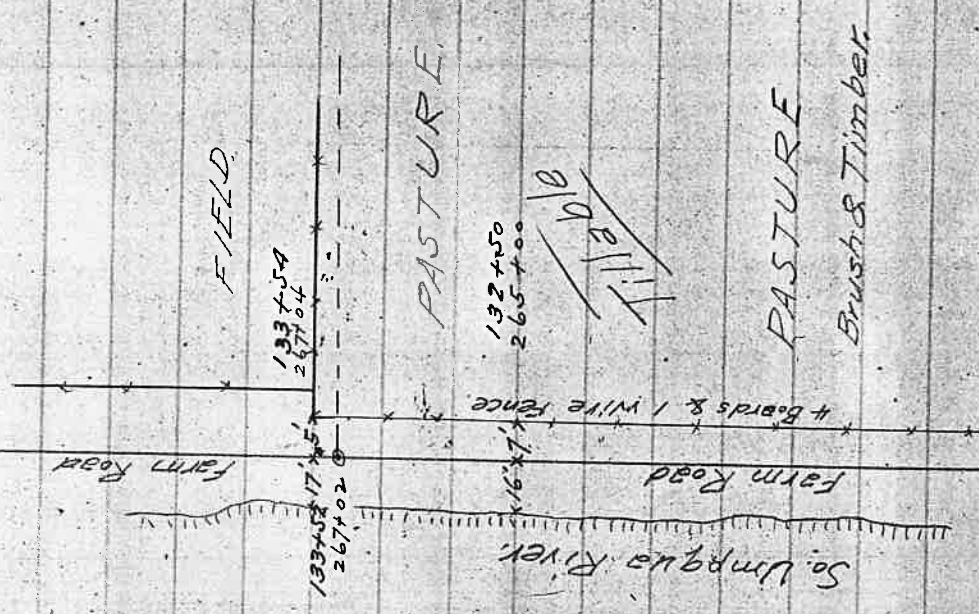 FIELD.
133+54
267+04
PASTURE.
132+50
265+00
Tillable
PASTURE
Brush & Timber.
4 Boards & 1 Wire Fence
Farm Road
17'
5'
133+52
267+02
16'
7'
Farm Road
So. Umpqua River.